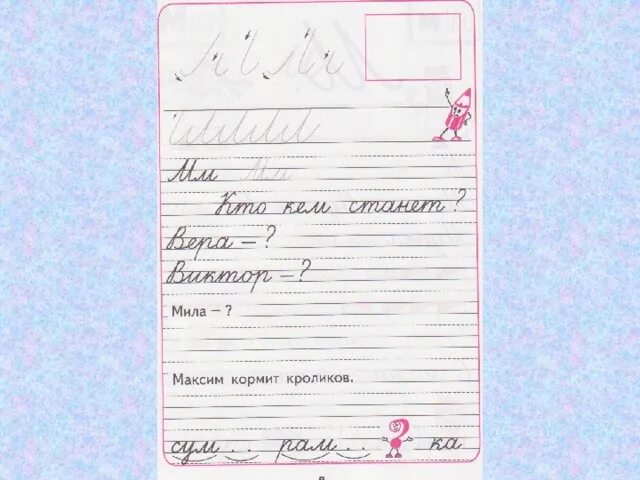 Мм Мм
Кто кем станет?
Вера – ?
Виктор – ?
Мила – ?
Максим кормит кроликов.
сум . . рам . . ? ка